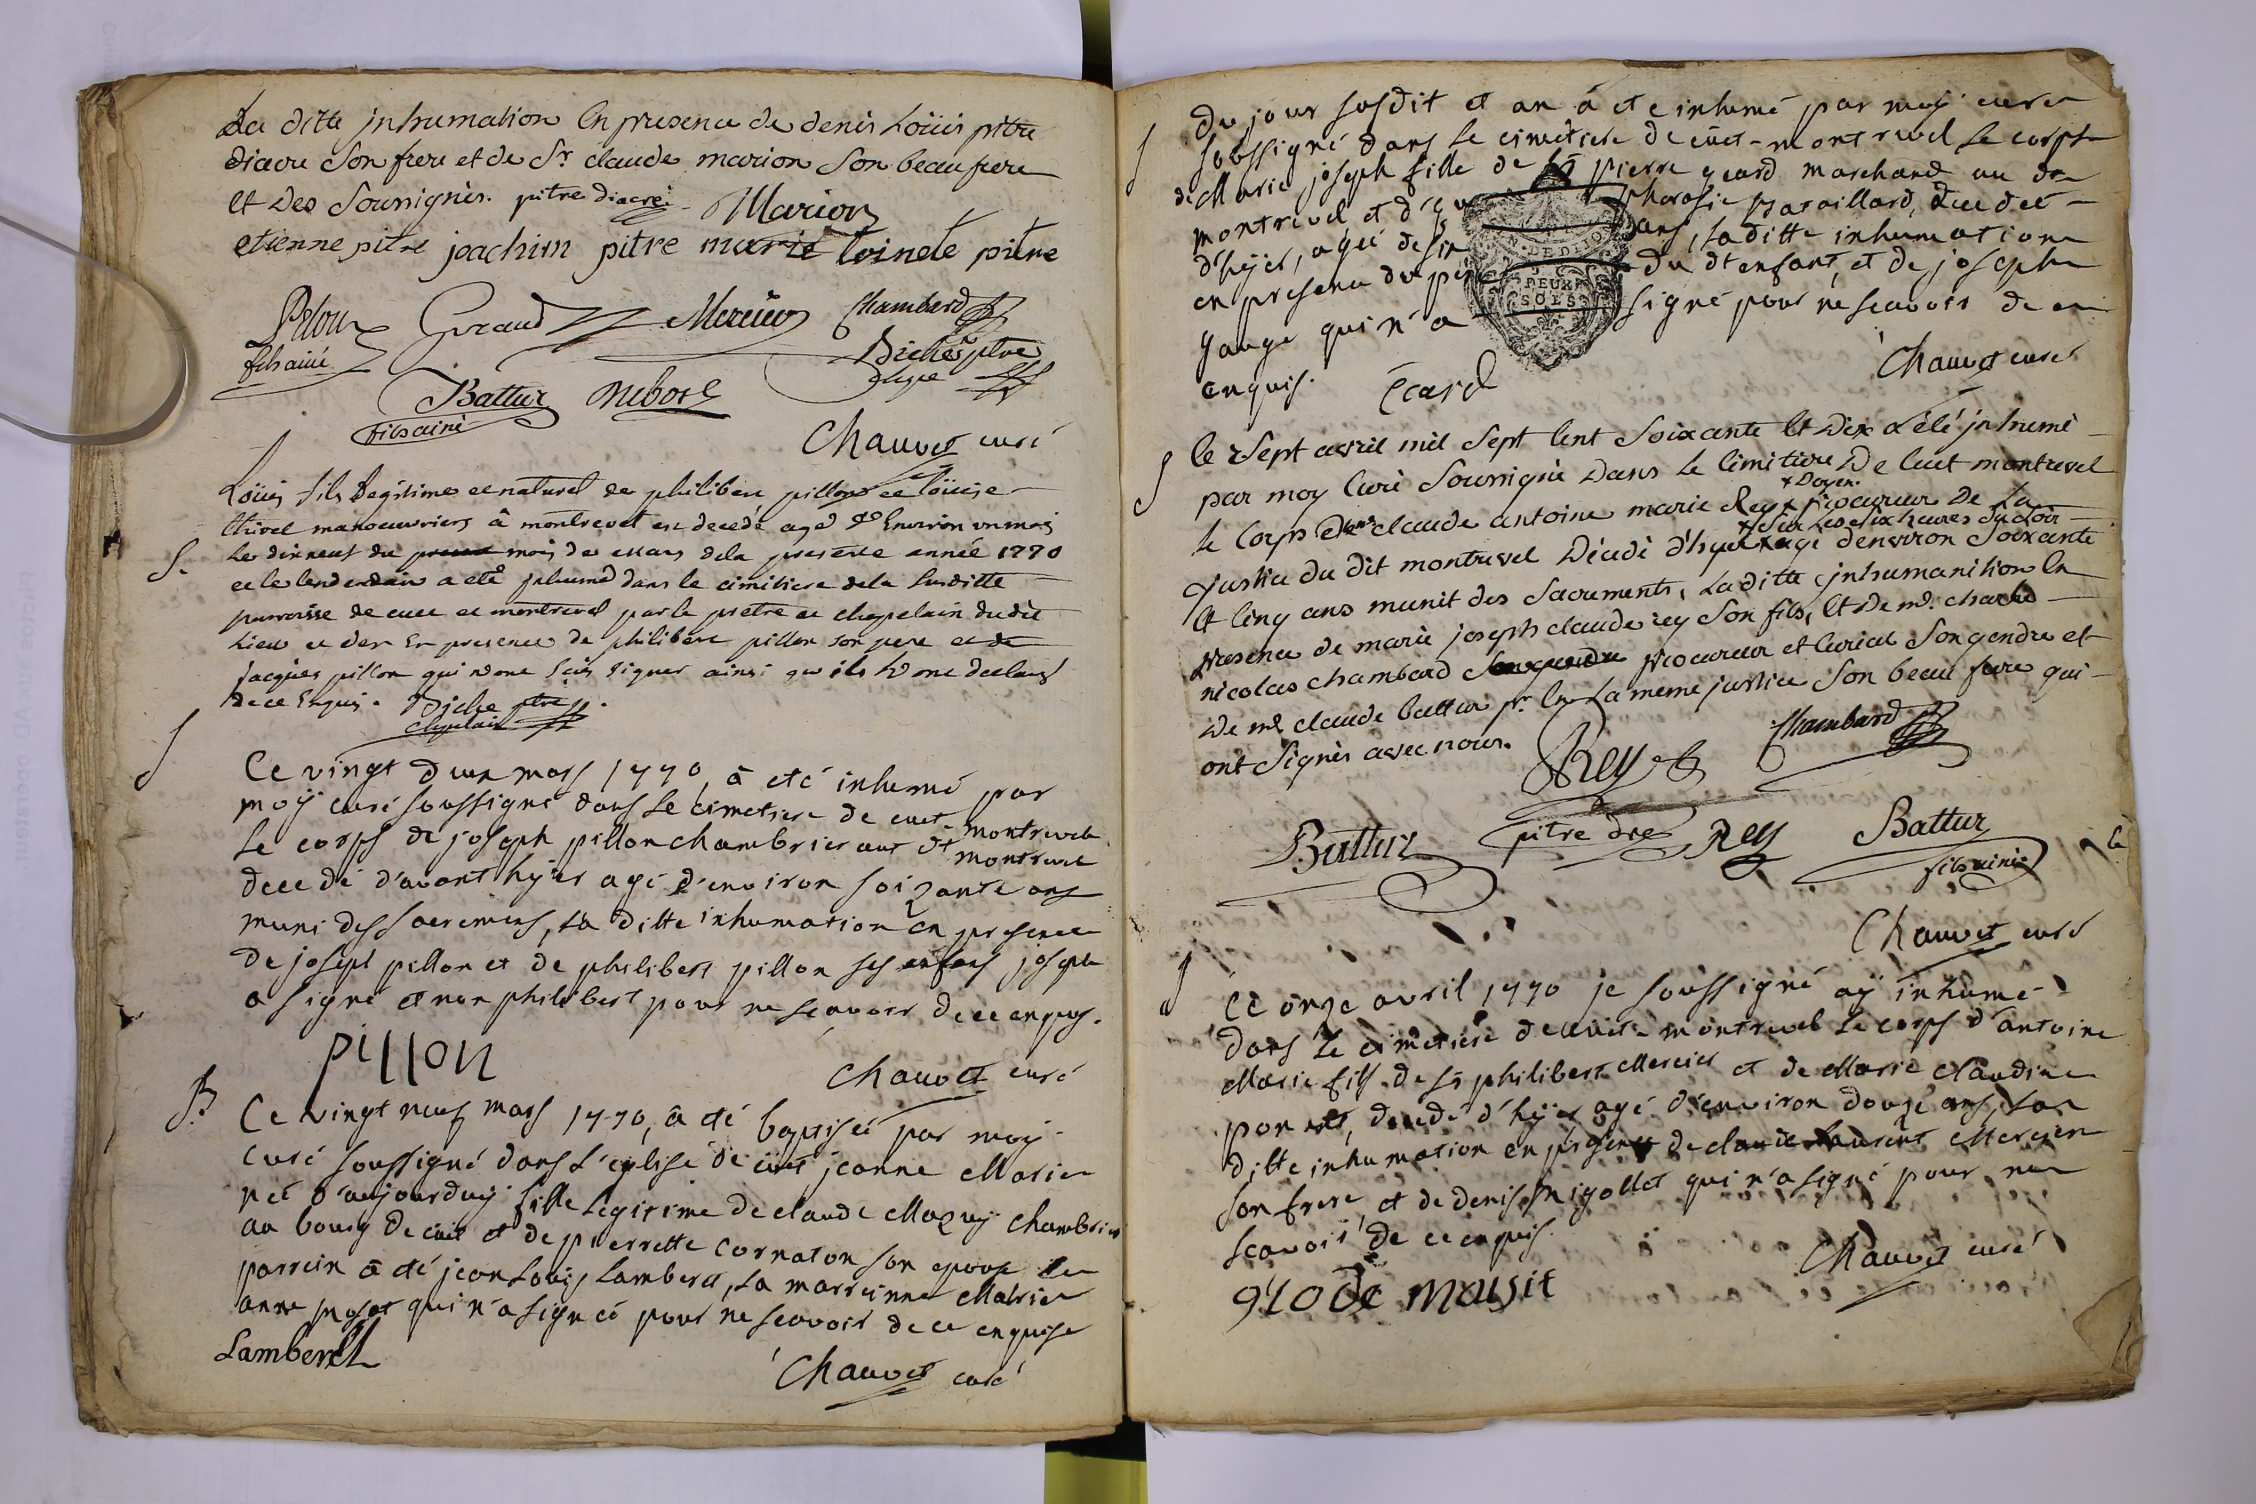 La ditte jnhumation En presence de denis Loüis pitre
diacre Son frere et de Sr. claude marion Son beaufrere
Et des Soussignés. pitre diacre Marion
etienne pitre joachim pitre marie toinete pitre
Giraud Mercier Chambard
fils ainé Diche ptre
Battur Nebost
fils ainé
Chauvet curé
S. Loüis fils Legitime et naturel de philibert pillon et Loüise
manoeuvriers â montrevel est decedé agé d'Environ un mois
Le dixneuf du mois de mars dela presente année 1770
et le lendemain a eté jnhumé dans le cimitiere dela Susditte
parroisse de cuet et montrevel par le prêtre et chapelain dudit
Lieu et de En presence de philibert pillon son pere et de
jacques pillon qui n'ont Scû signer ainsi qu'ils L'ont declaré
de ce Enquis. Diche ptre
chapelain
S Ce vingt d'eux mars 1770, â eté inhumé par
moÿ curé soussigné dans le cimetiere de cuet montrevel
le corps de joseph pillon chambrier aud dt montrevel
decedé d'avant hÿer agé d'environ soizante ans
muni des sacremens, la ditte inhumation en presence
de joseph pillon et de philibert pillon ses enfans joseph
a signé et non philibert pour ne scavoir de ce enquis.
pillon
Chauvet curé
B. Ce vingt neuf mars 1770, â eté baptiseé par moÿ
curé soussigné dans l'eglise de cuet jeanne Marie
neé d'aujourduÿ fille Legitime de claude Mazuÿ chambrier
au bourg de cuet et de pierrette cornaton son epouse le
parrein â eté jean Louis Lamberet, la marreinne Marie
anne qui n'a signeé pour ne scavoir de ce enquise
Lamberet
Chauvet curé
S Du jour susdit et an â eté inhumé par moÿ curé
soussigné dans le cimetiere de cuet-montrevel le corps
de Marie joseph fille de sr pierre ecard marchand au dt
montrevel et d' pharasie Bataillard, decedeé
d'hÿer, ageé de ans, la ditte inhumation
en presence du pere du dt enfant, et de joseph
gauge qui n'a signé pour ne scavoir de ce
enquis. Ecard
Chauvet curé
N. DE DIJO
DEUX
SOLS
S le Sept avril mil Sept Cent Soixante Et Dix a été jnhumé
par moy Curé Soussigné Dans Le Cimitiere De Cuet montrevel
+ Doyen.
le Corps de me claude antoine marie Rey + procureur De La
+ Sur Les Six heures du Soir
justice du dit montrevel Décédé d'hyer + agé d'environ Soixante
Et Cinq ans munit des Sacrements, La ditte jnhumanition En
presence de marie joseph claude rey Son fils, Et De me. charle
nicolas chambard procureur et Curial Son gendre et
De me claude battur pr. En La meme justice Son beau frere qui
ont Signés avec nous.
Rey Chambard
Battur pitre dre Rey Battur
fils ainé
Chauvet curé
S Ce onze avril 1770 je soussigné aÿ inhumé
dans le cimetiere de cuet-montrevel le corps d'antoine
Marie fils de sr philibert Mercier et de Marie Claudine
decedé d'hÿer agé d'environ douze ans, la
ditte inhumation en presence de claude Laurent Mercier
son frere et de denis migollet qui n'a signé pour ne
scavoir de ce enquis.
Chauvet curé